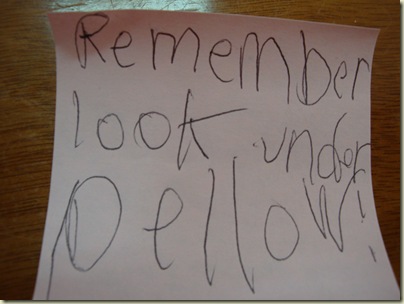 Remember
look under
Pellow!